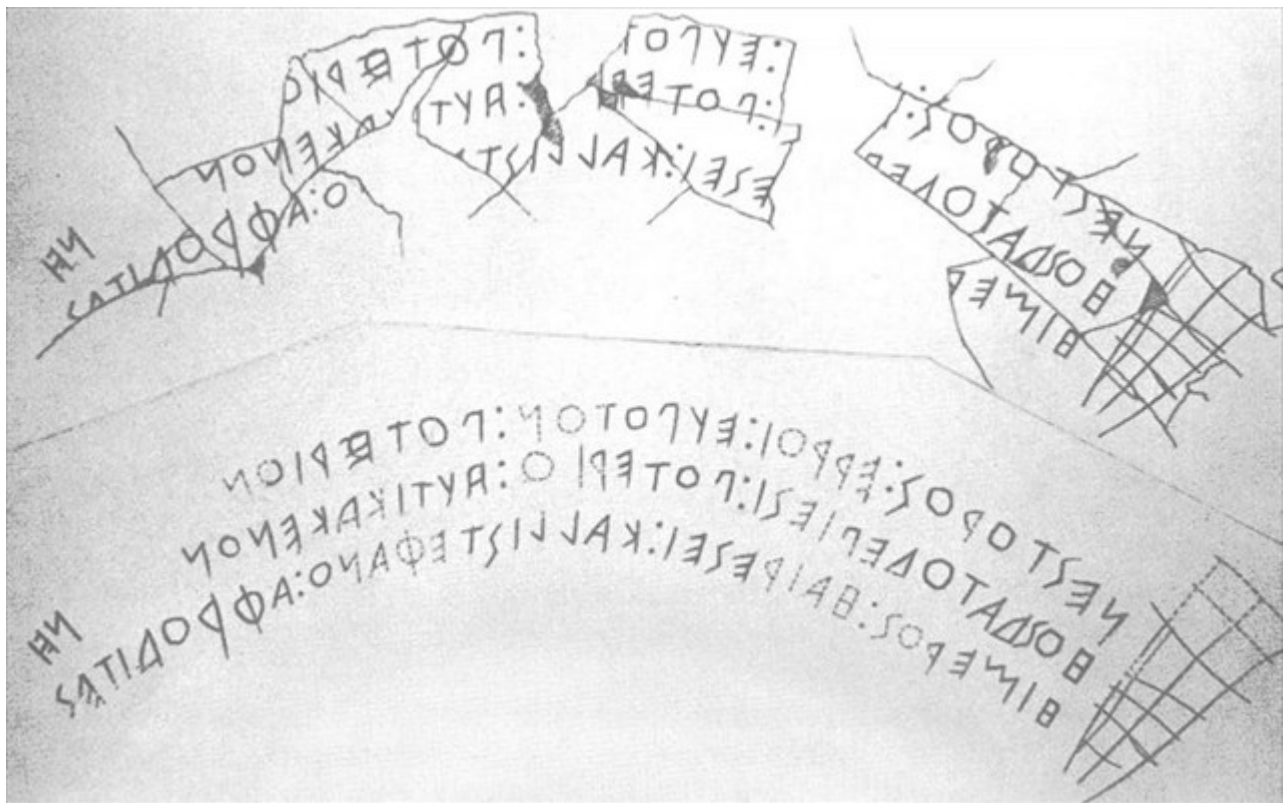 ΝΕΣΤΟΡΟΣ: ΕΥΠΟΤ :ΠΟΤΕΡΙΟ
ΗΟΣΔΑΤΟΔΕΠ ΠΟΤΕΡΙ :ΑΥΤΙ ΚΕΝΟΝ
ΗΙΜΕΡ ΕΣΕΙ:ΚΑΛΛΙΣΤ Ο:ΑΦΡΟΔΙΤΕΣ
ΝΕΣΤΟΡΟΣ:ΕΡΡΟΙ:ΕΥΠΟΤΟΝ:ΠΟΤΕΡΙΟΝ
ΗΟΣΔΑΤΟΔΕΠΙΕΣΙ:ΠΟΤΕΡΙ Ο:ΑΥΤΙΚΑΚΕΝΟΝ
ΗΙΜΕΡΟΣ:ΗΑΙΡΕΣΕΙ:ΚΑΛΛΙΣΤΕΦΑΝΟ:ΑΦΡΟΔΙΤΕΣ